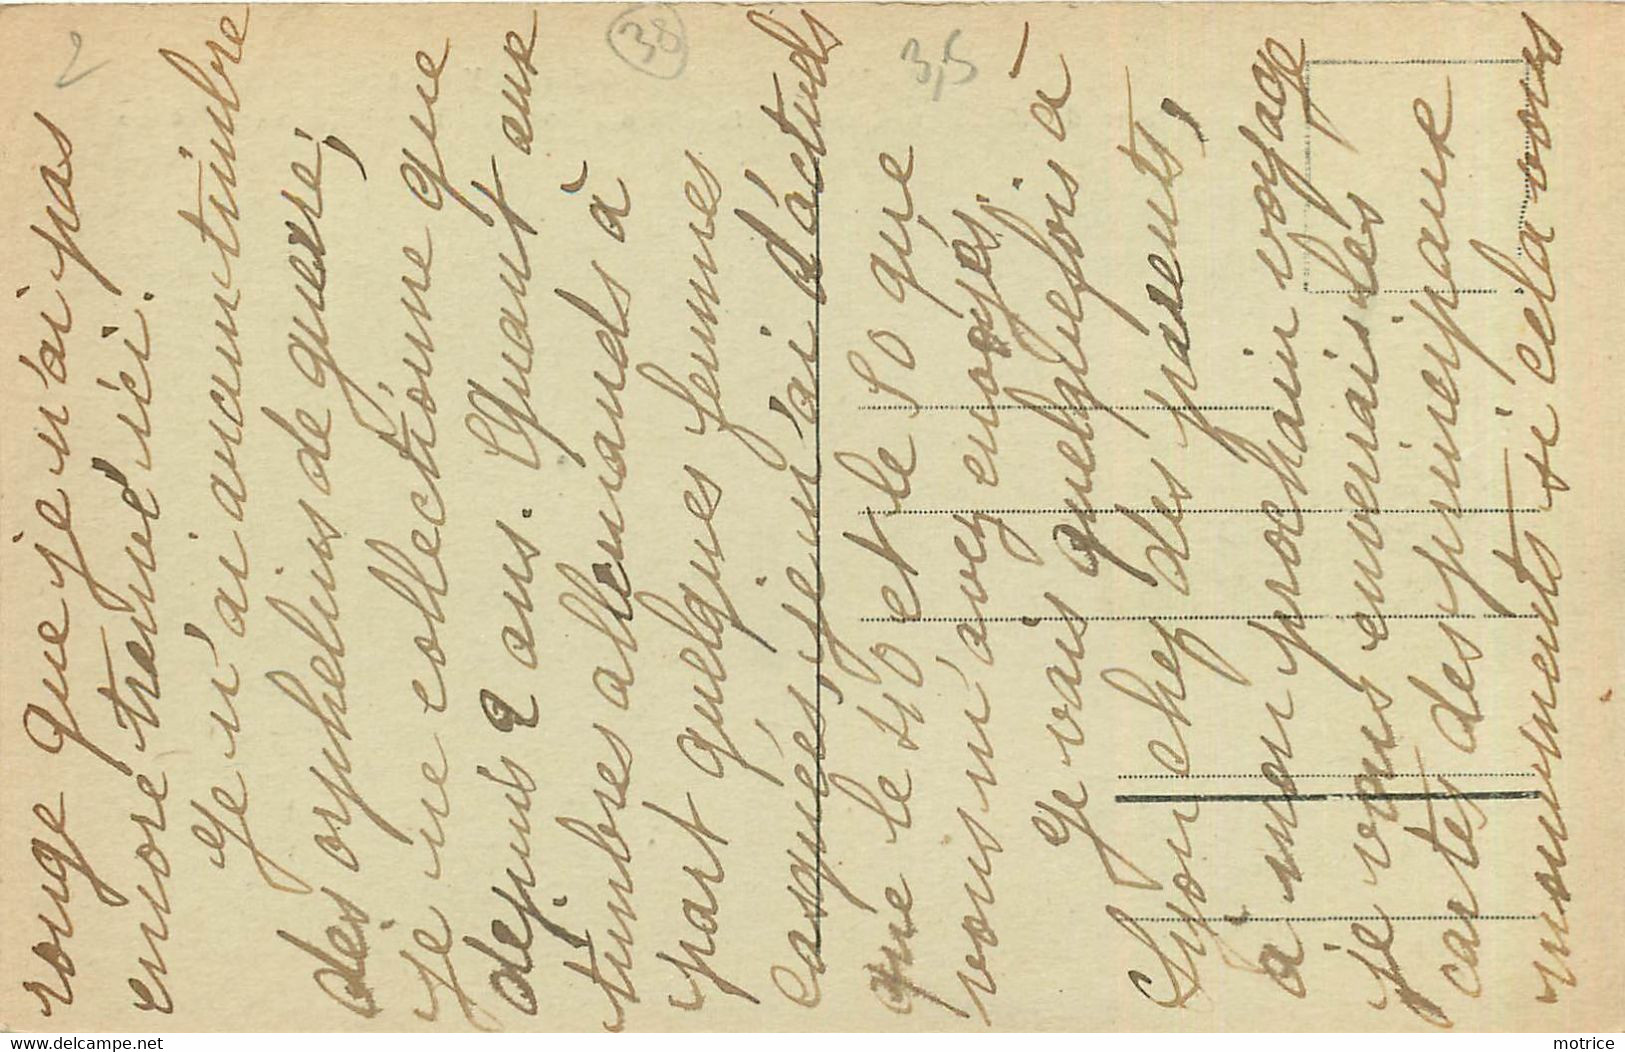 rouge que je n'ai pas
encore trouvé ici.
Je n'ai aucun timbre
des orphelins de guerre,
je ne collectionne que
depuis 2 ans. Quant aux
timbres allemands à
part quelques femmes
casqués, je n'ai d'actuels
que le 40 et le 50 que
vous m'avez envoyés.
Je vais quelquefois à
Lyon chez des parents,
à mon prochain voyage
je vous enverrais les
cartes des principaux
monuments si cela vous
2
38
3,5
delcampe.net
motrice